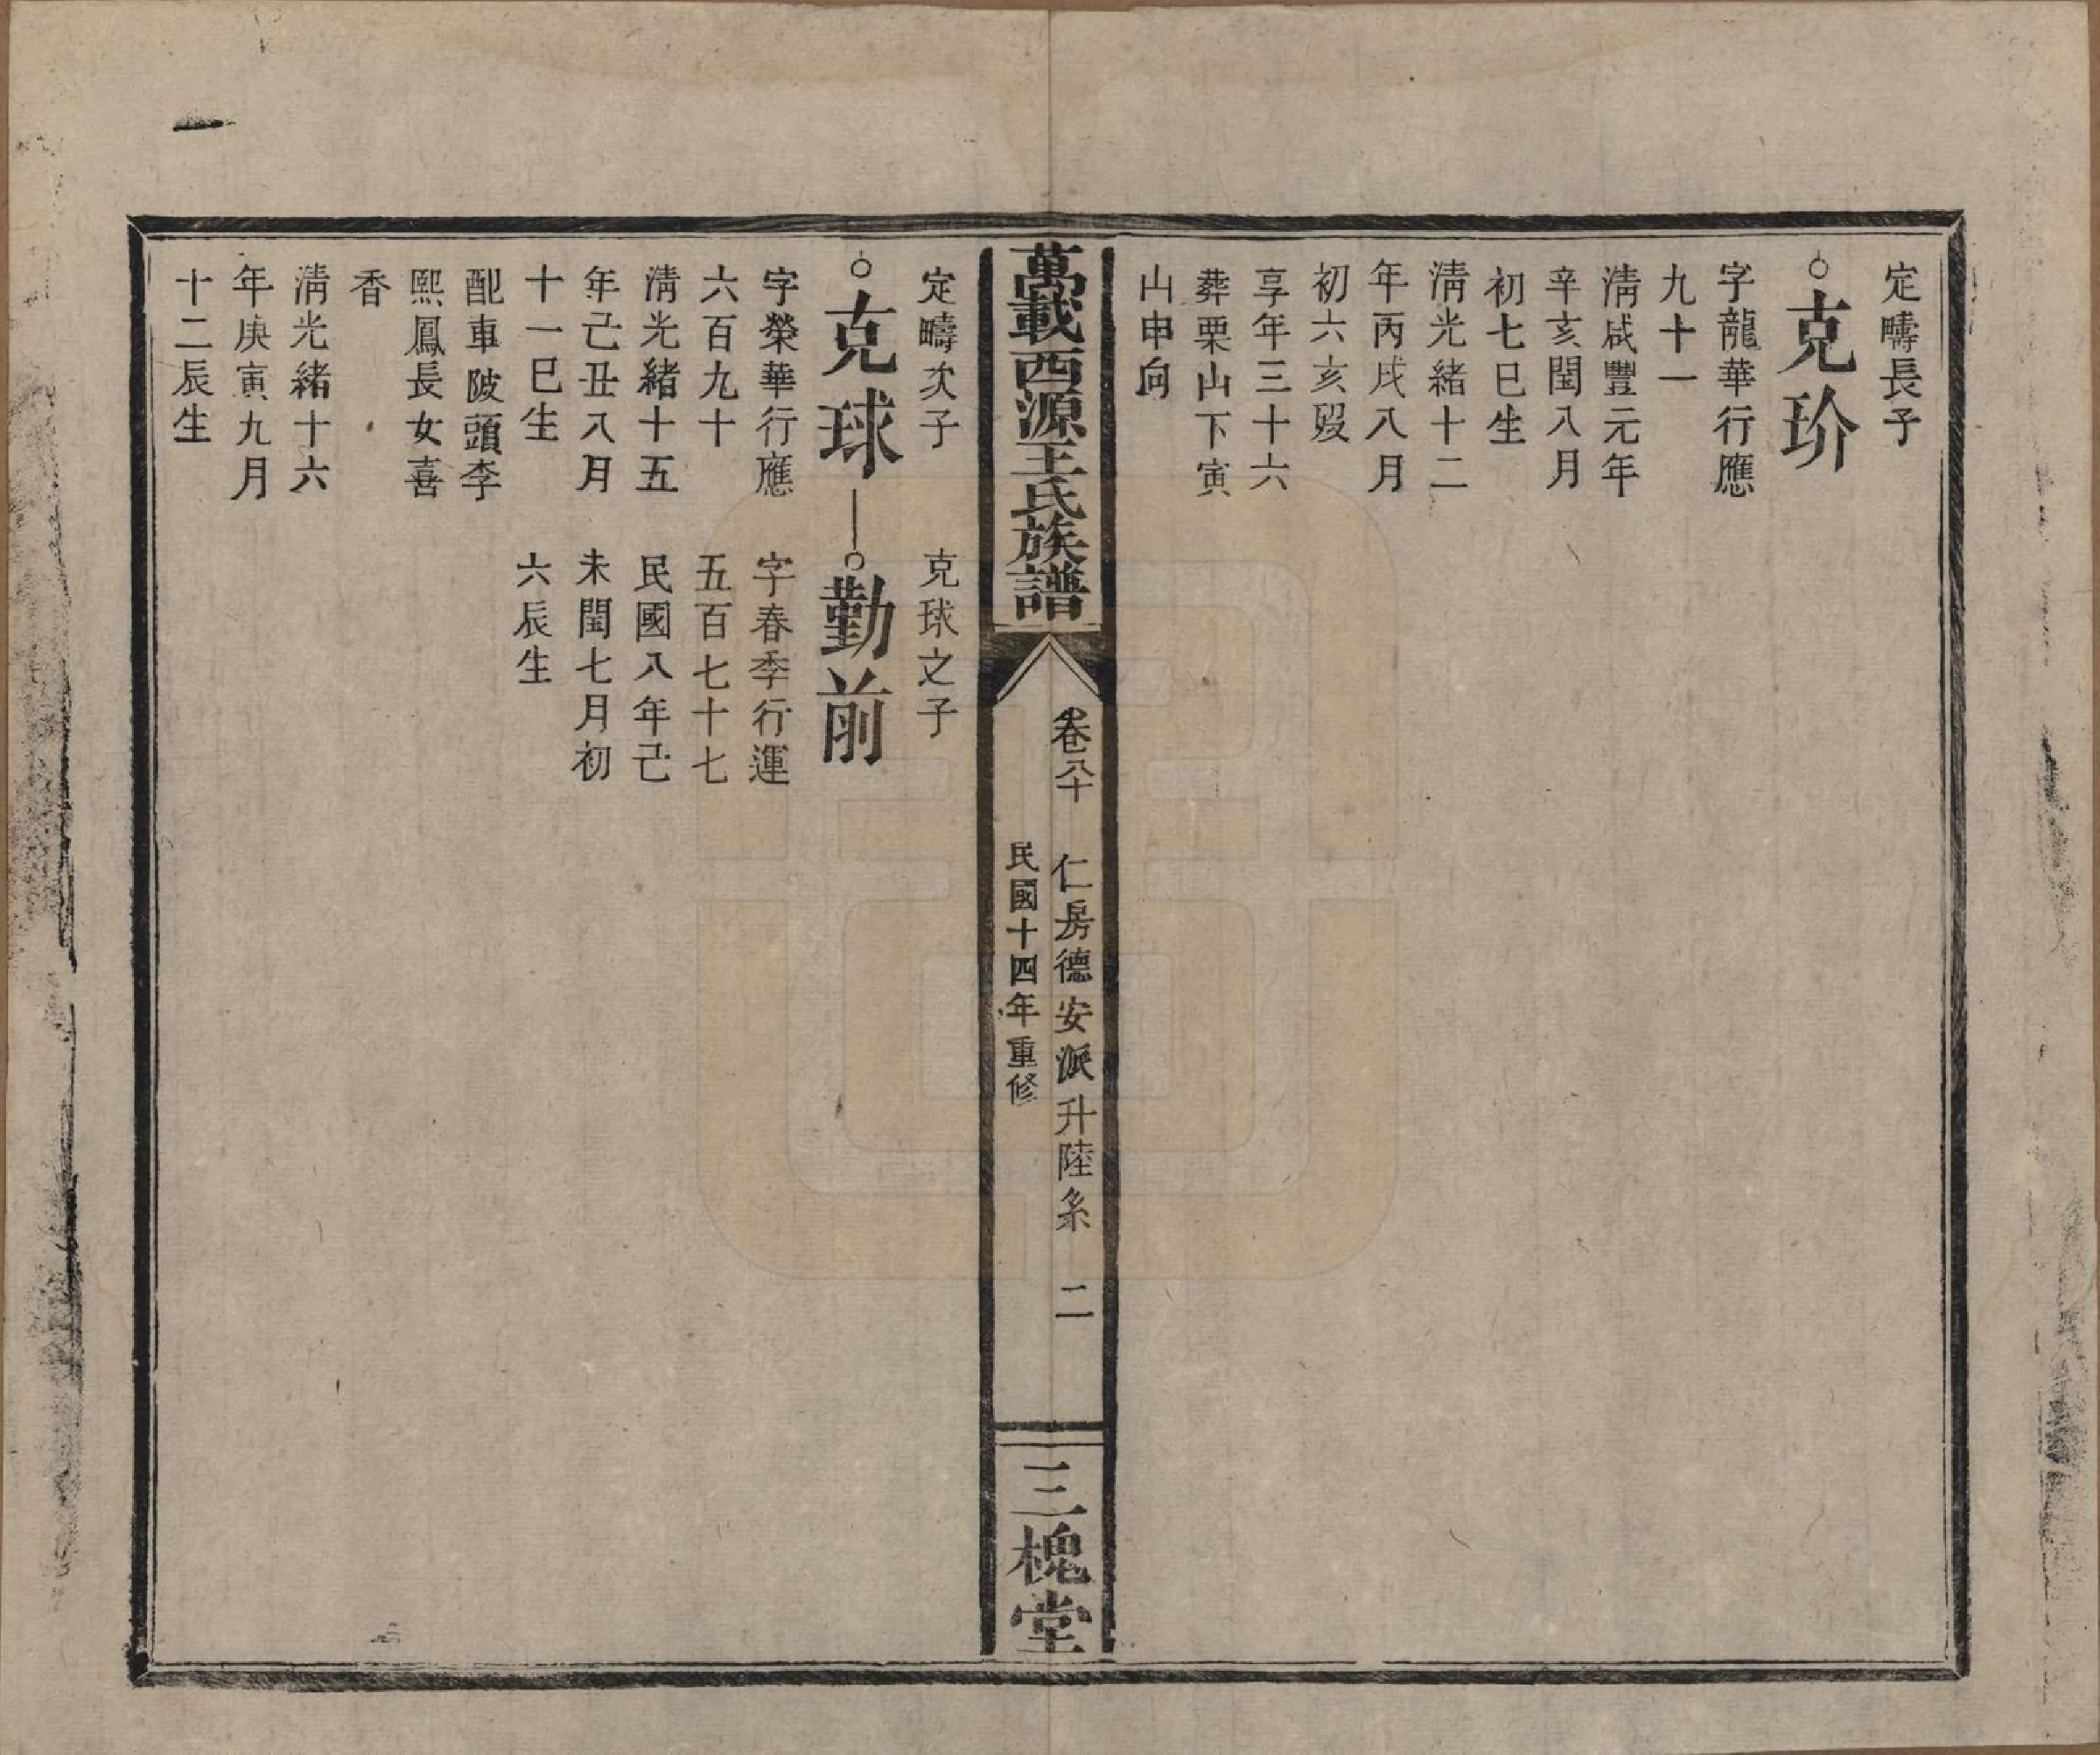 定疇長子
克玠
字龍華行應
九十一
清咸豐元年
辛亥閏八月
初七巳生
清光緒十二
年丙戌八月
初六亥歿
享年三十六
葬栗山下寅
山申向
萬載西源王氏族譜
卷八十
仁房德安派升陸系
二
民國十四年重修
三槐堂
定疇次子
克球
字榮華行應
六百九十
清光緒十五
年己丑八月
十一巳生
配車陂頭李
熙鳳長女喜
香
清光緒十六
年庚寅九月
十二辰生
克球之子
勤前
字春季行運
五百七十七
民國八年己
未閏七月初
六辰生